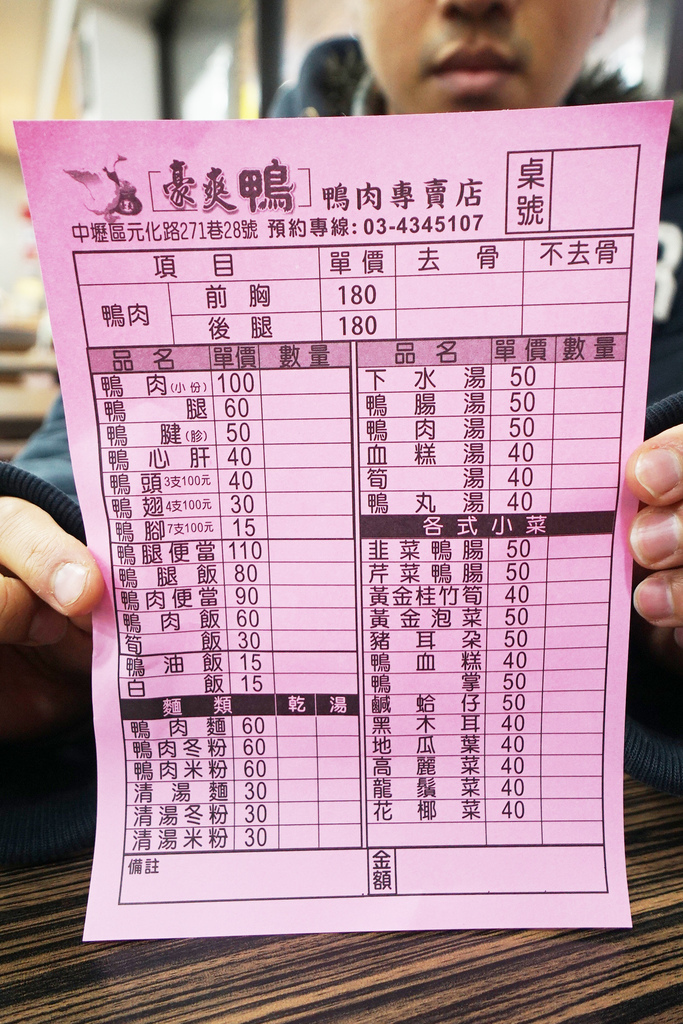 豪爽鴨 鴨肉專賣店 桌號
中壢區元化路271巷28號 預約專線: 03-4345107
項目 單價 去骨 不去骨
鴨肉 前胸 180
後腿 180
品名 單價 數量
鴨肉(小份) 100
鴨腿 60
鴨腱(胗) 50
鴨心肝 40
鴨頭3支100元 40
鴨翅4支100元 30
鴨腳7支100元 15
鴨腿便當 110
鴨腿飯 80
鴨肉便當 90
鴨肉飯 60
筍飯 30
鴨油飯 15
白飯 15
麵類 乾 湯
鴨肉麵 60
鴨肉冬粉 60
鴨肉米粉 60
清湯麵 30
清湯冬粉 30
清湯米粉 30
備註
品名 單價 數量
下水湯 50
鴨腸湯 50
鴨肉湯 50
血糕湯 40
筍湯 40
鴨丸湯 40
各式小菜
韭菜鴨腸 50
芹菜鴨腸 50
黃金桂竹筍 40
黃金泡菜 50
豬耳朵 50
鴨血糕 40
鴨掌 50
鹹蛤仔 50
黑木耳 40
地瓜葉 40
高麗菜 40
龍鬚菜 40
花椰菜 40
金額